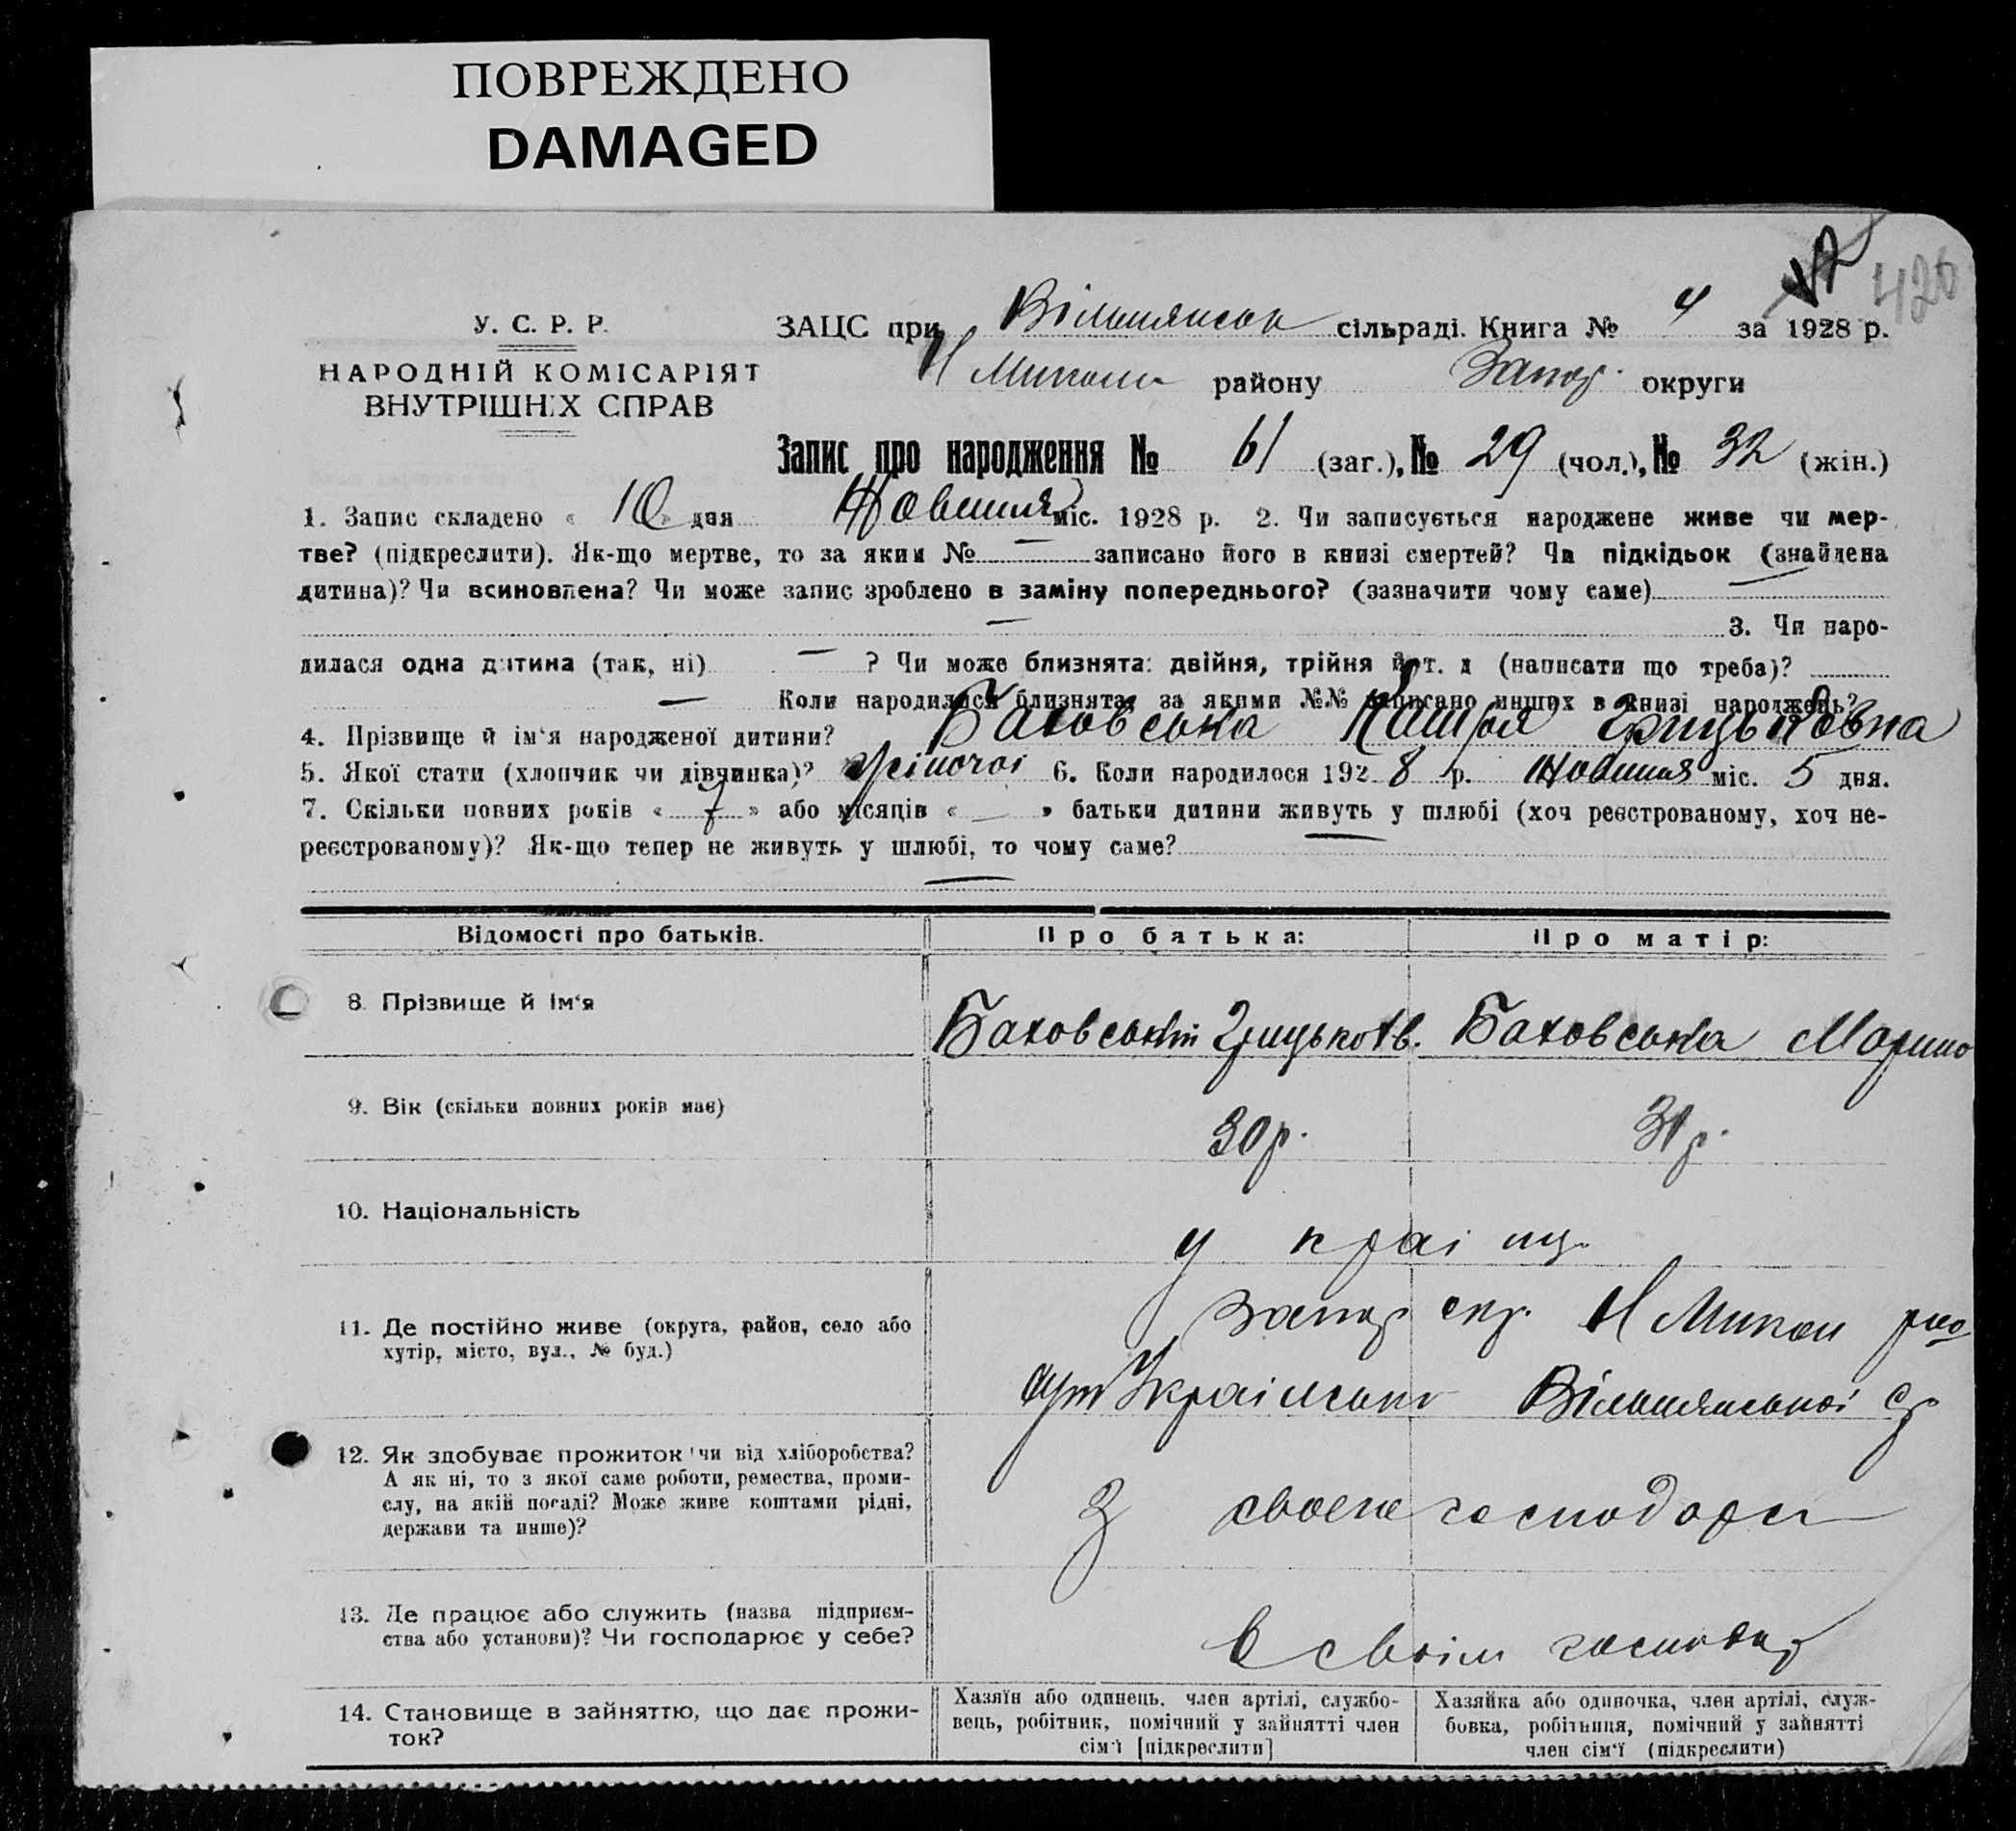 ПОВРЕЖДЕНО
DAMAGED
У. С. Р. Р.
НАРОДНІЙ КОМІСАРІЯТ
ВНУТРІШНІХ СПРАВ
426
ЗАЦС при Вільшянськ сільраді. Книга № 4 за 1928 р.
Н Микол району Запор. округи
Запис про народження № 61 (заг.), № 29 (чол.), № 32 (жін.)
1. Запис складено « 10 » дня Жовтня міс. 1928 р. 2. Чи записується народжене живе чи мер-
тве? (підкреслити). Як-що мертве, то за яким № — записано його в книзі смертей? Чи підкідьок (знайдена
дитина)? Чи всиновлена? Чи може запис зроблено в заміну попереднього? (зазначити чому саме) —
— 3. Чи наро-
дилася одна дитина (так, ні) — ? Чи може близнята: двійня, трійня й т. д (написати що треба)?
— Коли народилися близнята, за якими №№ записано инших в книзі народжень?
4. Прізвище й ім'я народженої дитини? Баховська Грицьковна
5. Якої стати (хлопчик чи дівчинка)? жіночоі 6. Коли народилося 1928 р. Жовтня міс. 5 дня.
7. Скільки повних років « 7 » або місяців « — » батьки дитини живуть у шлюбі (хоч реєстрованому, хоч не-
реєстрованому)? Як-що тепер не живуть у шлюбі, то чому саме? —
—
Відомості про батьків. Про батька: Про матір:
8. Прізвище й ім'я Баховський Грицько Ів. Баховська Марина
9. Вік (скільки повних років має) 30 р. 31 р.
10. Національність україц.
11. Де постійно живе (округа, район, село або
хутір, місто, вул., № буд.)
Запор окр. Н Микол рно
хут Українськ Вільшянськоі ср
12. Як здобуває прожиток чи від хліборобства?
А як ні, то з якої саме роботи, ремества, проми-
слу, на якій посаді? Може живе коштами рідні,
держави та инше)?
З свого господарс
13. Де працює або служить (назва підприєм-
ства або установи)? Чи господарює у себе?
В своім господар
14. Становище в зайняттю, що дає прожи-
ток?
Хазяїн або одинець, член артілі, службо-
вець, робітник, помічний у зайнятті член
сім'ї [підкреслити]
Хазяйка або одиночка, член артілі, служ-
бовка, робітниця, помічний у зайнятті
член сім'ї (підкреслити)